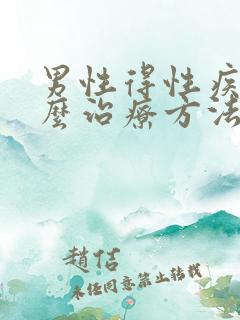 男性得性疾
麼治療方法
趙佶
未经同意禁止转载